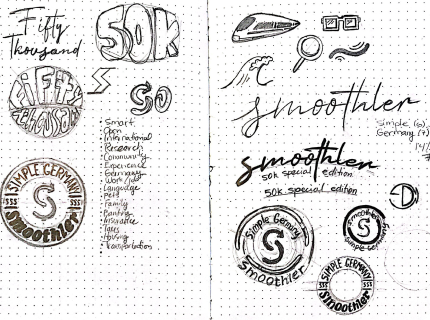 Fifty
Thousand
50K
FIFTY
THOUSAND
So
Smart
Open
International
Research
Community
Experience
Germany
Work/Job
Language
Pets
Family
Banking
Insurance
Taxes
Housing
Transportation
SIMPLE GERMANY
SSS SSS
S
Smoothler
smoothler
Simple (6)
Germany (7)
smoothler
50k special edition
50k special edition
Simple Germany
S
Smoothler
Smoothler
S
Simple Germany
SIMPLE GERMANY
SSS SSS
Smoothler